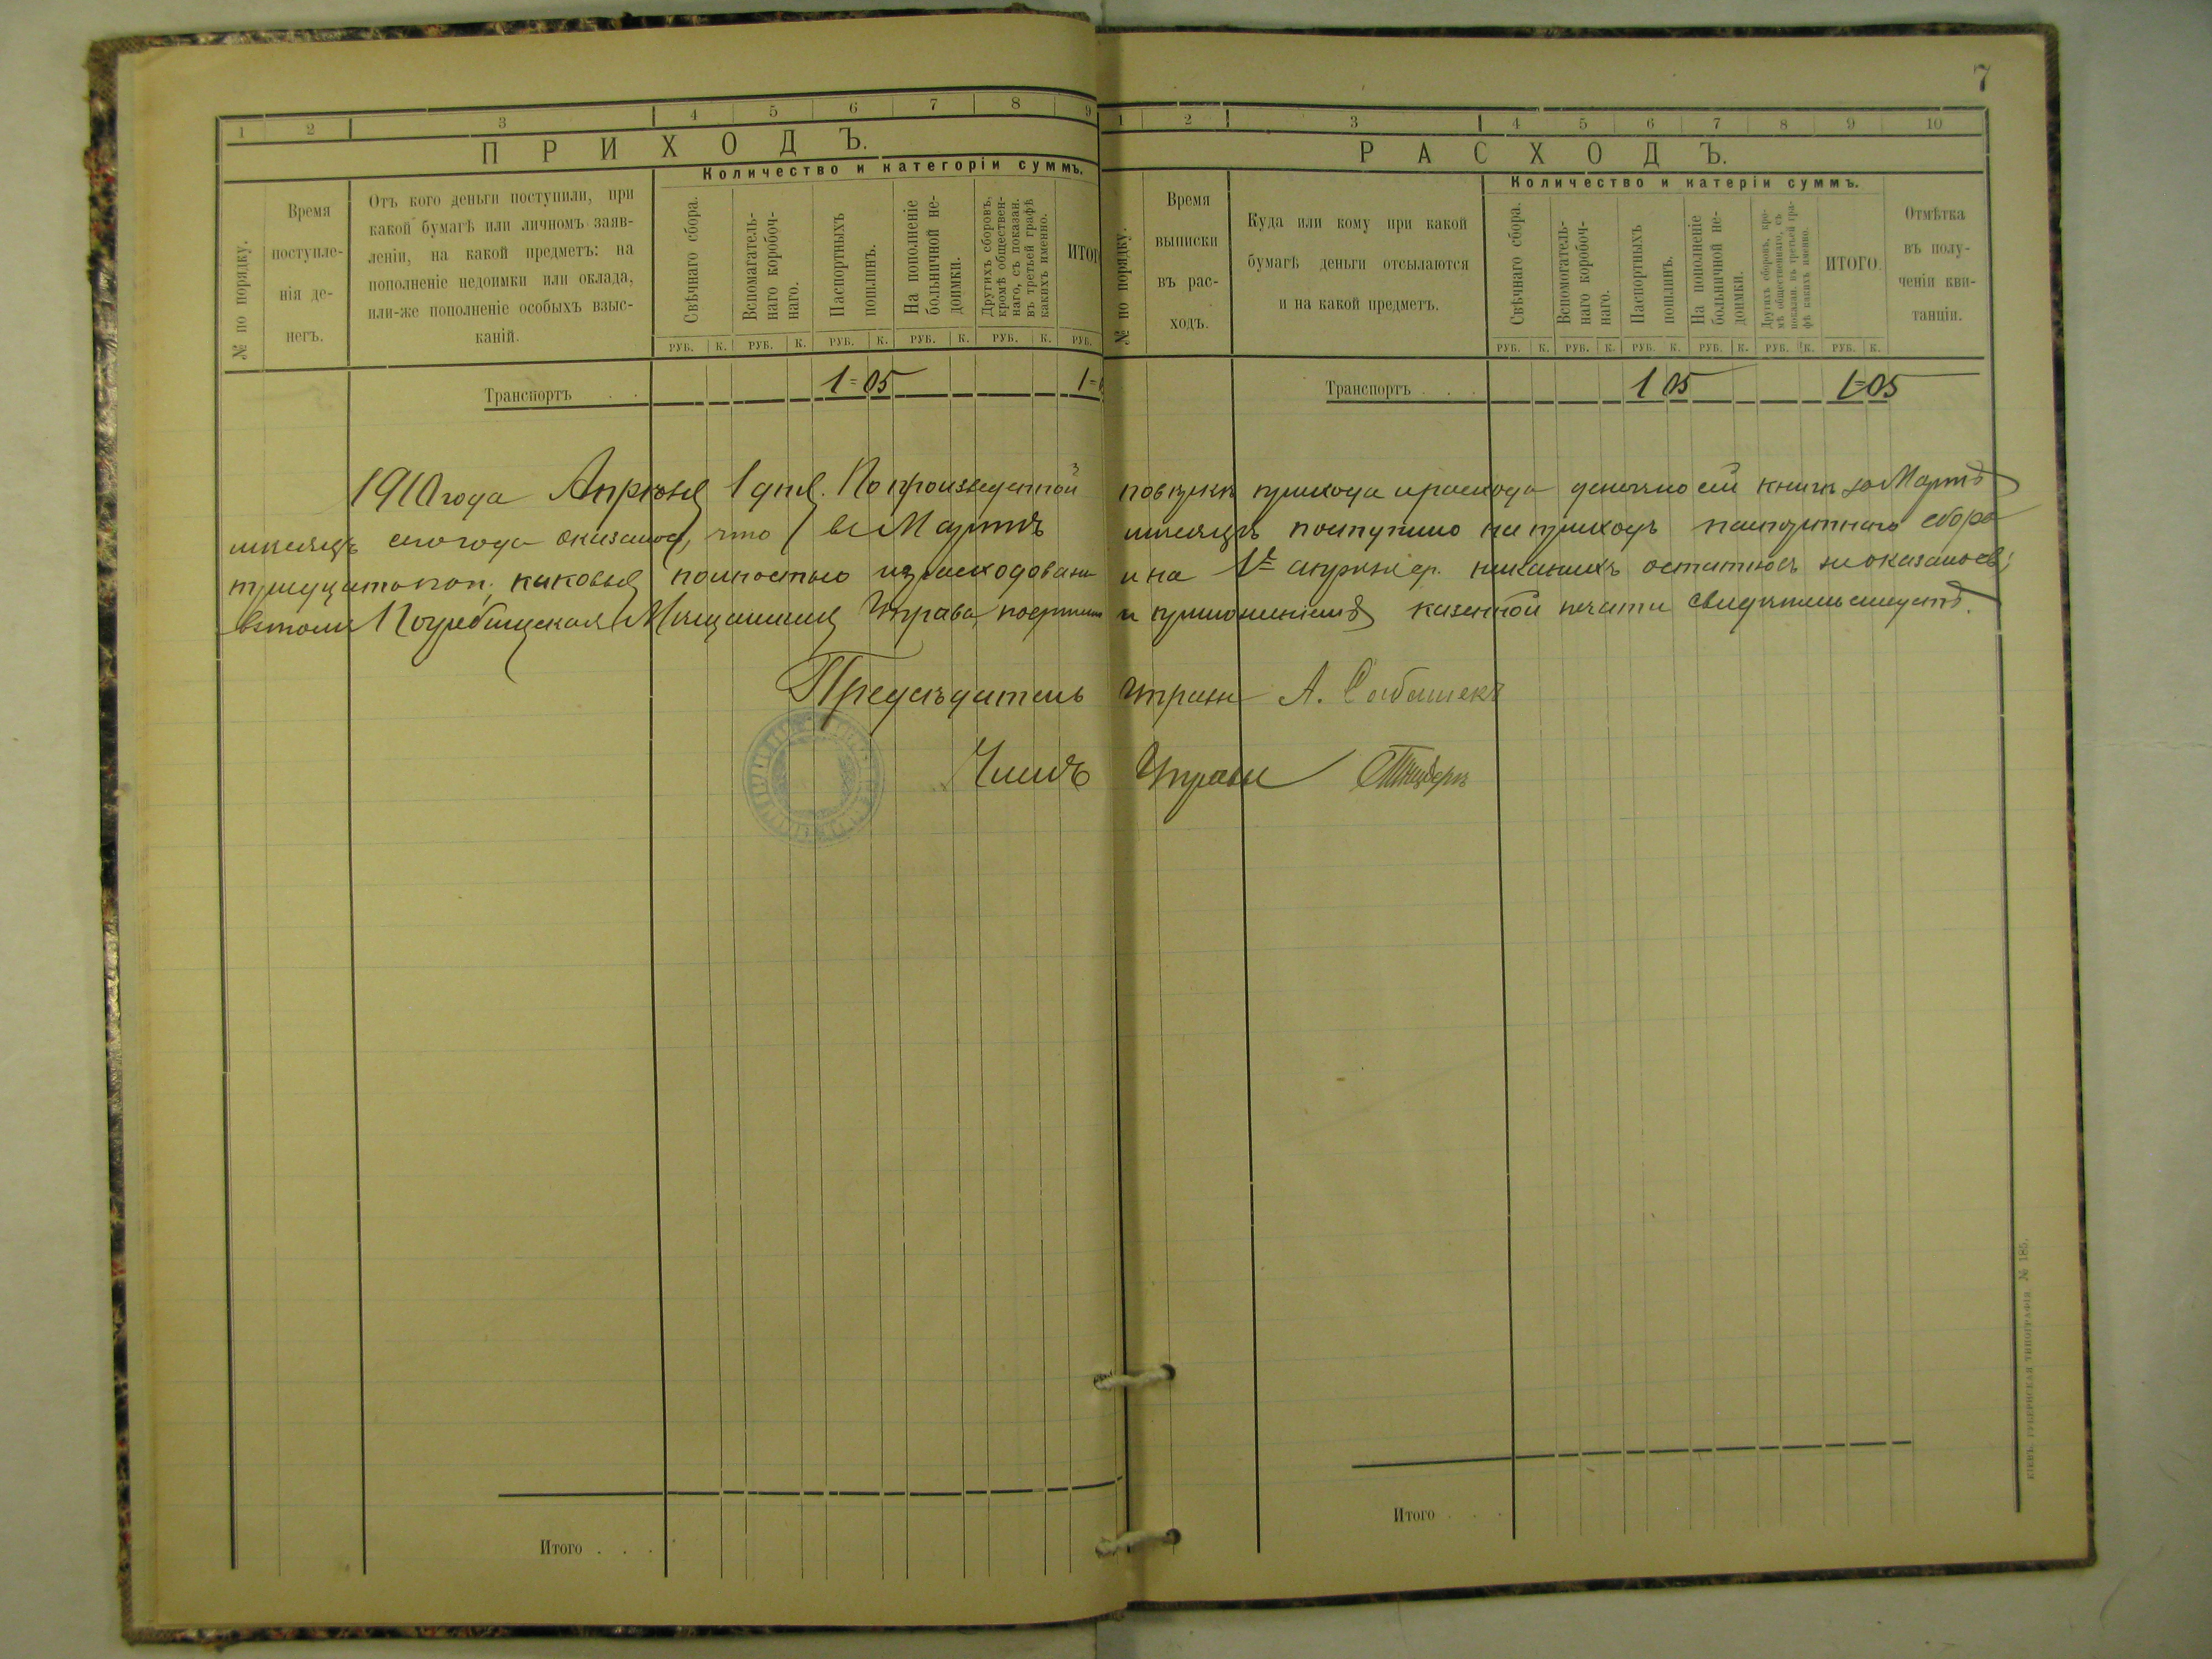 7
1 2 3 4 5 6 7 8 9
ПРИХОДЪ.
Количество и категоріи суммъ.
№ по порядку.
Время
поступле-
нія де-
негъ.
Отъ кого деньги поступили, при
какой бумагѣ или личномъ заяв-
леніи, на какой предметъ: на
пополненіе недоимки или оклада,
или-же пополненіе особыхъ взыс-
каній.
Свѣчнаго сбора.
Вспомагатель-
наго коробоч-
наго.
Паспортныхъ
пошлинъ.
На пополненіе
больничной не-
доимки.
Другихъ сборовъ,
кромѣ обществен-
наго, съ показан.
въ третьей графѣ
какихъ именно.
ИТОГ
РУБ. К. РУБ. К. РУБ. К. РУБ. К. РУБ. К. РУБ.
Транспортъ . . 1=05 1=
1 2 3 4 5 6 7 8 9 10
РАСХОДЪ.
Количество и катеріи суммъ.
№ по порядку.
Время
выписки
въ рас-
ходъ.
Куда или кому при какой
бумагѣ деньги отсылаются
и на какой предметъ.
Свѣчнаго сбора.
Вспомогатель-
наго коробоч-
наго.
Паспортныхъ
пошлинъ.
На пополненіе
больничной не-
доимки.
Другихъ сборовъ, кро-
мѣ общественнаго, съ
показан. въ третьей гра-
фѣ какихъ именно.
ИТОГО.
Отмѣтка
въ полу-
ченіи кви-
танціи.
РУБ. К. РУБ. К. РУБ. К. РУБ. К. РУБ. К. РУБ. К.
Транспортъ . . . 1 05 1=05
1910 года Апрѣля 1 дня. По произведенной повѣркѣ прихода и расхода денегъ по сей книгѣ за Мартъ
мѣсяцъ сего года оказалось, что въ Мартѣ мѣсяцѣ поступило на приходъ паспортнаго сбора
тридцать коп., каковыя полностью израсходованы и на 1е апрѣля с.г. никакихъ остатковъ не оказалось;
въ томъ Погребищская Мѣщанская Управа подписью и приложеніемъ казенной печати свидѣтельствуетъ.
Предсѣдатель Управы А.
Членъ Управы
Итого . . .
Итого . . .
КІЕВЪ. ГУБЕРНСКАЯ ТИПОГРАФІЯ. № 185.